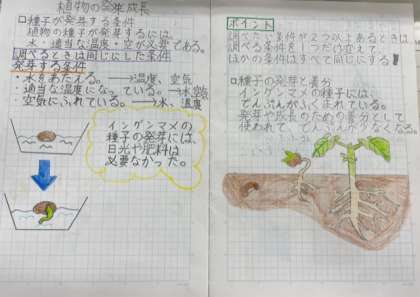 植物の発芽成長
□種子が発芽する条件
植物の種子が発芽するには、
水・適当な温度・空気が必要である。
調べるときは同じにした条件
発芽する条件
・水をあたえる。→温度、空気
・適当な温度になっている。→水、空気
・空気にふれている。→水、温度
インゲンマメの
種子の発芽には、
日光や肥料は
必要なかった。
ポイント
調べたい条件が2つ以上あるときは、
調べる条件を1つだけ変えて、
ほかの条件はすべて同じにする
□種子の発芽と養分
インゲンマメの種子には、
でんぷんがふくまれている。
発芽や成長のための養分として
使われて、でんぷんが少なくなる。